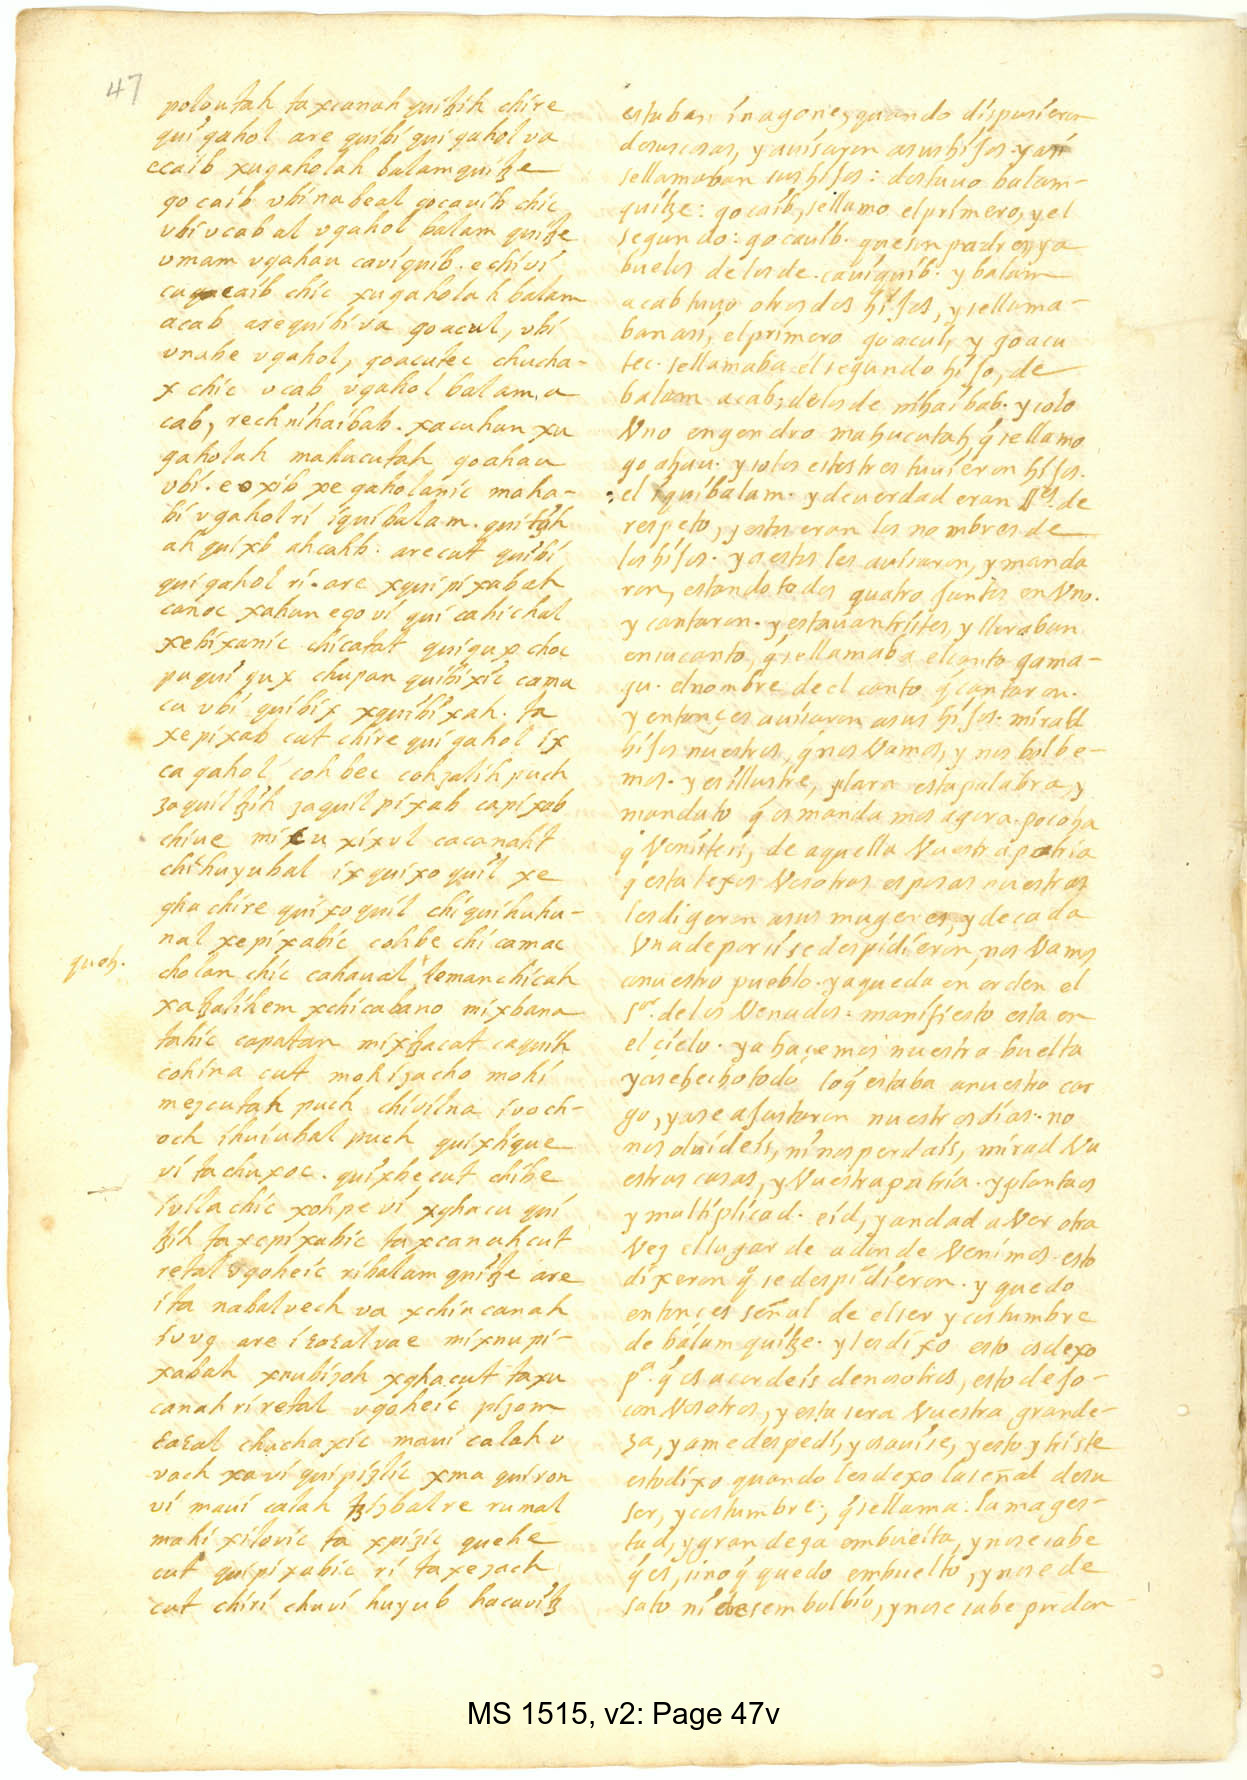 47
poloutah ta xcanah quitzih chire
qui gahol are quibi qui gahol va
ecaib xugaholah balamquitze
qo caib vbi nabeal qocavib chic
vbi vcab al vgahol balam quitze
vmam vgahau caviquib. e chi vi
caib chic xugaholah balam
acab are quibi va qoacul, vbi
vnabe vgahol, qoacutec chucha-
x chic vcab vgahol balam, a
cab, rech nihaibab. xacuhun xu
gaholah mahucutah qoahau
vbi. e oxib xe gaholanic maha-
bi vgahol ri iquibalam. quitzih
ah quixb ahcahb. are cut quibi
qui gahol ri. are xqui pixabah
canoc xahun ego vi qui cahichal
xebixanic chicatat quiqux choc
puqui qux chupan quibixic cama
cu vbi quibix xquibixah. ta
xepixab cut chire qui gahol ix
ca gahol coh bec cohzalih puch
zaquil tzih zaquil pixab capixab
chiue mixu xixul cacanaht
chi huyubal ixquixoquil xe
gha chire quixoquil chiquihuhu-
nal xepixabic cohbe chi camac
queh.
cholan chic cahaual temanchicah
xa tzalihem xchicabano mixbana
tahic capatan mixtzacat caquih
cohina cut mohizacho mohi
mezcutah puch chivilna ivoch-
och ihuiubal puch quixtique
vi ta chuxoc. quixbe cut chibe
ivila chic xohpe vi xghacu qui
tzih ta xepixabic ta xcanah cut
retal vqoheic ri balam quitze are
ita nabal vech va xchincanah
ivvg are iεaεal vae mixnu pi-
xabah xnubizoh xghacut ta xu
canah ri retal vqoheic pizom
εaεal chuchaxic mavi calah v
vach xa vi qui pizlic xma quiron
vi mavi calah tzizbal re rumal
mahi xilovic ta xpizic quehe
cut qui pixabic ri ta xe zach
cut chiri chuvi huyub hacavitz
estaban in agone, quando dispusieron
desus cosas, y avisaron asus hijos. yasi
sellamaban sus hijos: dos tuvo balam-
quitze: qocaib, sellamo el primero, y el
segundo: qocauib. que son padres, y a
buelos de los de. caviquib. y balam
acab tuvo otros dos hijos, y sellama-
ban asi, el primero qoacul, y qoacu
tec. sellamaba el segundo hijo, de
balam acab; delos de nihaibab. y solo
Vno engendro mahucutah, q̃ sellamo
qo ahau. y solos estos tres tuvieron hijos.
el iquibalam. y deverdad eran SSes. de
respeto, y estos eran los nombres de
los hijos. y a estos les avisaron, y manda
ron, estando todos quatro juntos en Vno.
y cantaron. y estavan tristes, y lloraban
en su canto, q̃ sellamaba el canto qama-
qu. el nombre de el canto q̃ cantaron.
y entonçes avisaron asus hijos. mirad
hijos nuestros, q̃ nos Vamos, y nos bolbe-
mos. y es illustre, y clara esta palabra, y
mandato q̃ os manda mos agora. poco ha
q̃ Venisteis, de aquella Vuestra patria
q̃ esta lexos Vosotras esposas nuestras
les digeron asus mugeres, y de cada
Vna de por si se despidieron, nos Vamos
anuestro pueblo. ya queda en orden el
Sor. de los Venados. manifiesto esta en
el cielo. ya haçemos nuestra buelta
ya se hecho todo lo q̃ estaba anuestro car
go, ya se ajustaron nuestros dias. no
nos olvideis, ni nos perdais, mirad Vu
estras casas, y Vuestra patria. y plantaos
y multiplicad. eid, y andad a Ver otra
Vez el lugar de adonde Venimos. esto
dixeron q̃ se despidieron. y quedo
entonçes señal de el ser y costumbre
de balam quitze. y les dixo esto os dexo
pa. q̃ os acordeis denosotros, esto dejo-
con Vosotros, y esta sera Vuestra grande-
za, ya me despedi, y os avise, y esto y triste
esto dixo quando les dexo la señal desu
ser, y costumbre; q̃ sellama: la mages-
tad, y grandeza embuelta, y no se sabe
q̃ es, sino q̃ quedo embuelto, y no se de
sato ni desembolbio, y no se sabe por don
MS 1515, v2: Page 47v